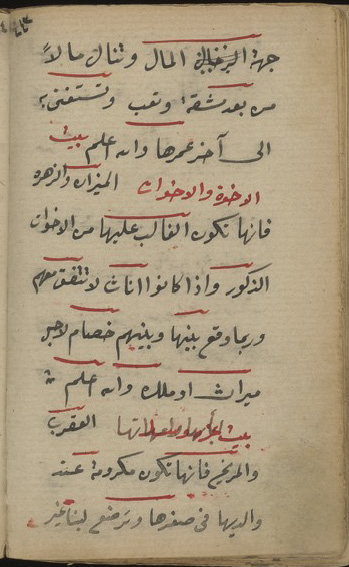 جهة المال وتنال مالاً
من بعد مشقة وتعب وتستغنى به
الى آخر عمرها والله اعلم بيت
الاخوة والاخوات الميزان والزهره
فانها تكون الغالب عليها من الاخوات
الذكور واذا كانوا اناث لا تتفق معهم
وربما وقع بينها وبينهم خصام لاجل
ميراث او ملك والله اعلم
بيت العقرب
والمريخ فانها تكون مكرومة عند
والديها فى صغرها وترضع لبنا غير